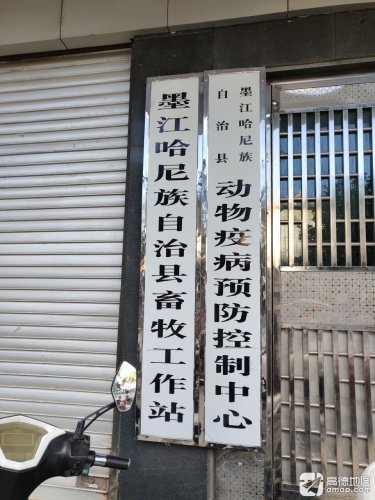 墨江哈尼族
自治县
动物疫病预防控制中心
墨江哈尼族自治县畜牧工作站
高德地图
amap.com